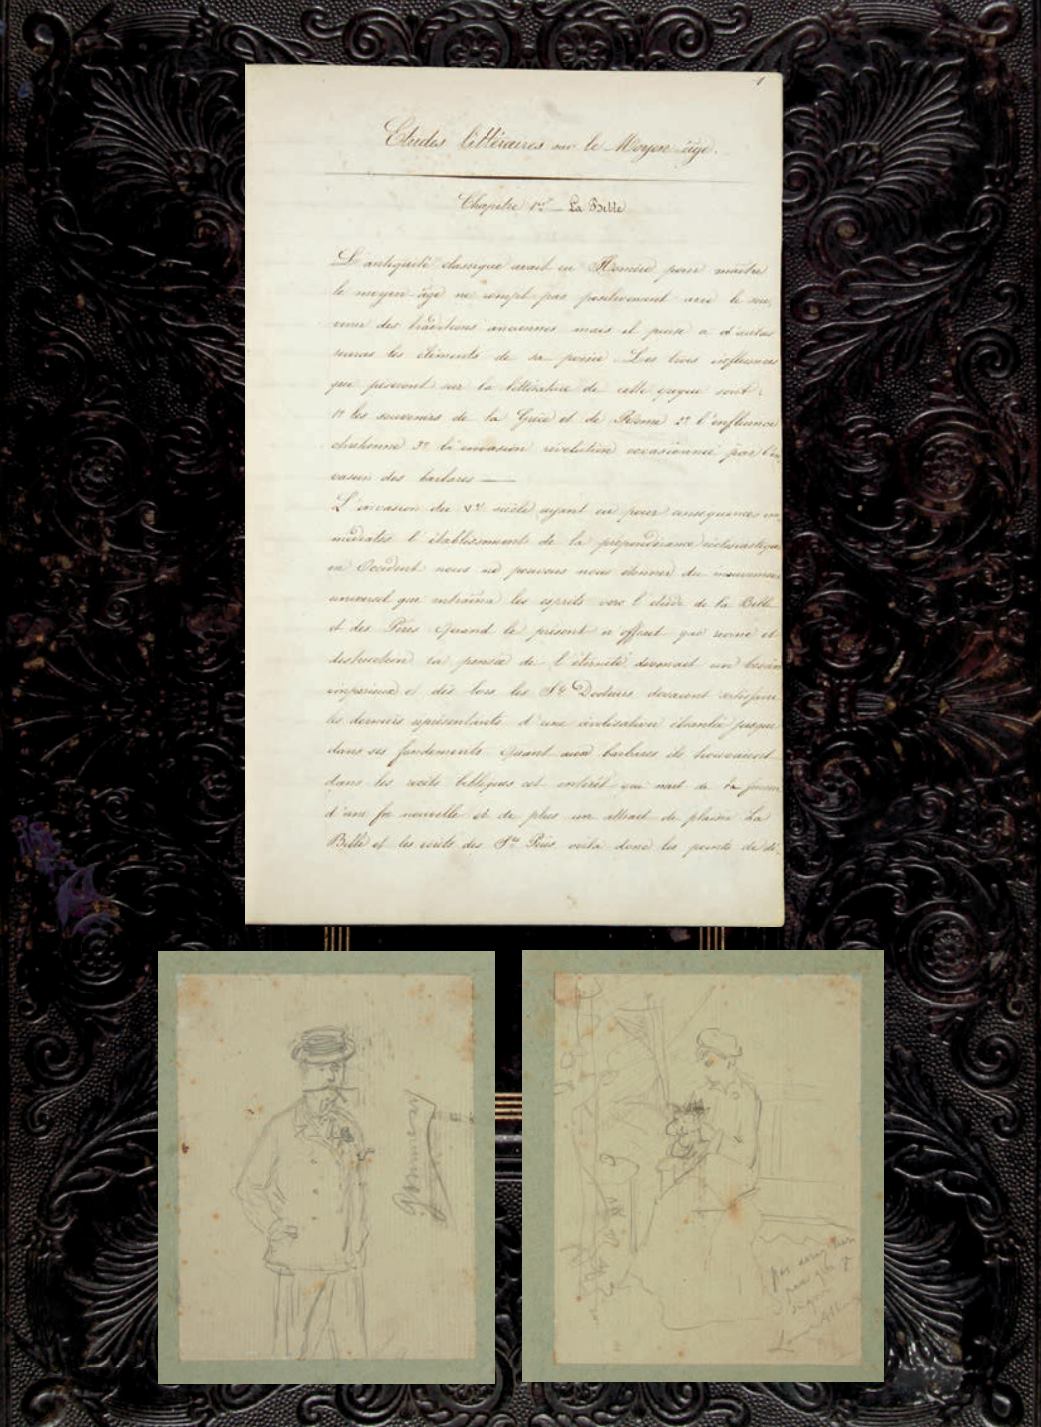 1
Etudes littéraires sur le Moyen-âge.
Chapitre 1er _ La Bible
L'antiquité classique avait eu Homère pour maître
le moyen-âge ne rompt pas positivement avec le sou
venir des traditions anciennes mais il puise à d'autres
sources les éléments de sa poésie. Les trois influences
qui pèseront sur la littérature de cette époque sont :
1º les souvenirs de la Grèce et de Rome 2º l'influence
chrétienne 3º la révolution occasionnée par l'in
vasion des barbares
L'invasion du Vº siècle ayant eu pour conséquences im
médiates l'établissement de la prépondérance ecclésiastique
en Occident nous ne pouvons nous étonner du mouvement
universel qui entraîna les esprits vers l'étude de la Bible
et des Pères. Quand le présent n'offrait que ruine et
destruction la pensée de l'éternité devenait un besoin
impérieux et dès lors les Sts Docteurs devaient satisfaire
les derniers représentants d'une civilisation ébranlée jusque
dans ses fondements. Quant aux barbares ils trouvaient
dans les récits bibliques cet intérêt qui naît de la
d'une foi nouvelle et de plus un attrait de plaisir La
Bible et les écrits des Sts Pères voilà donc les points de dé